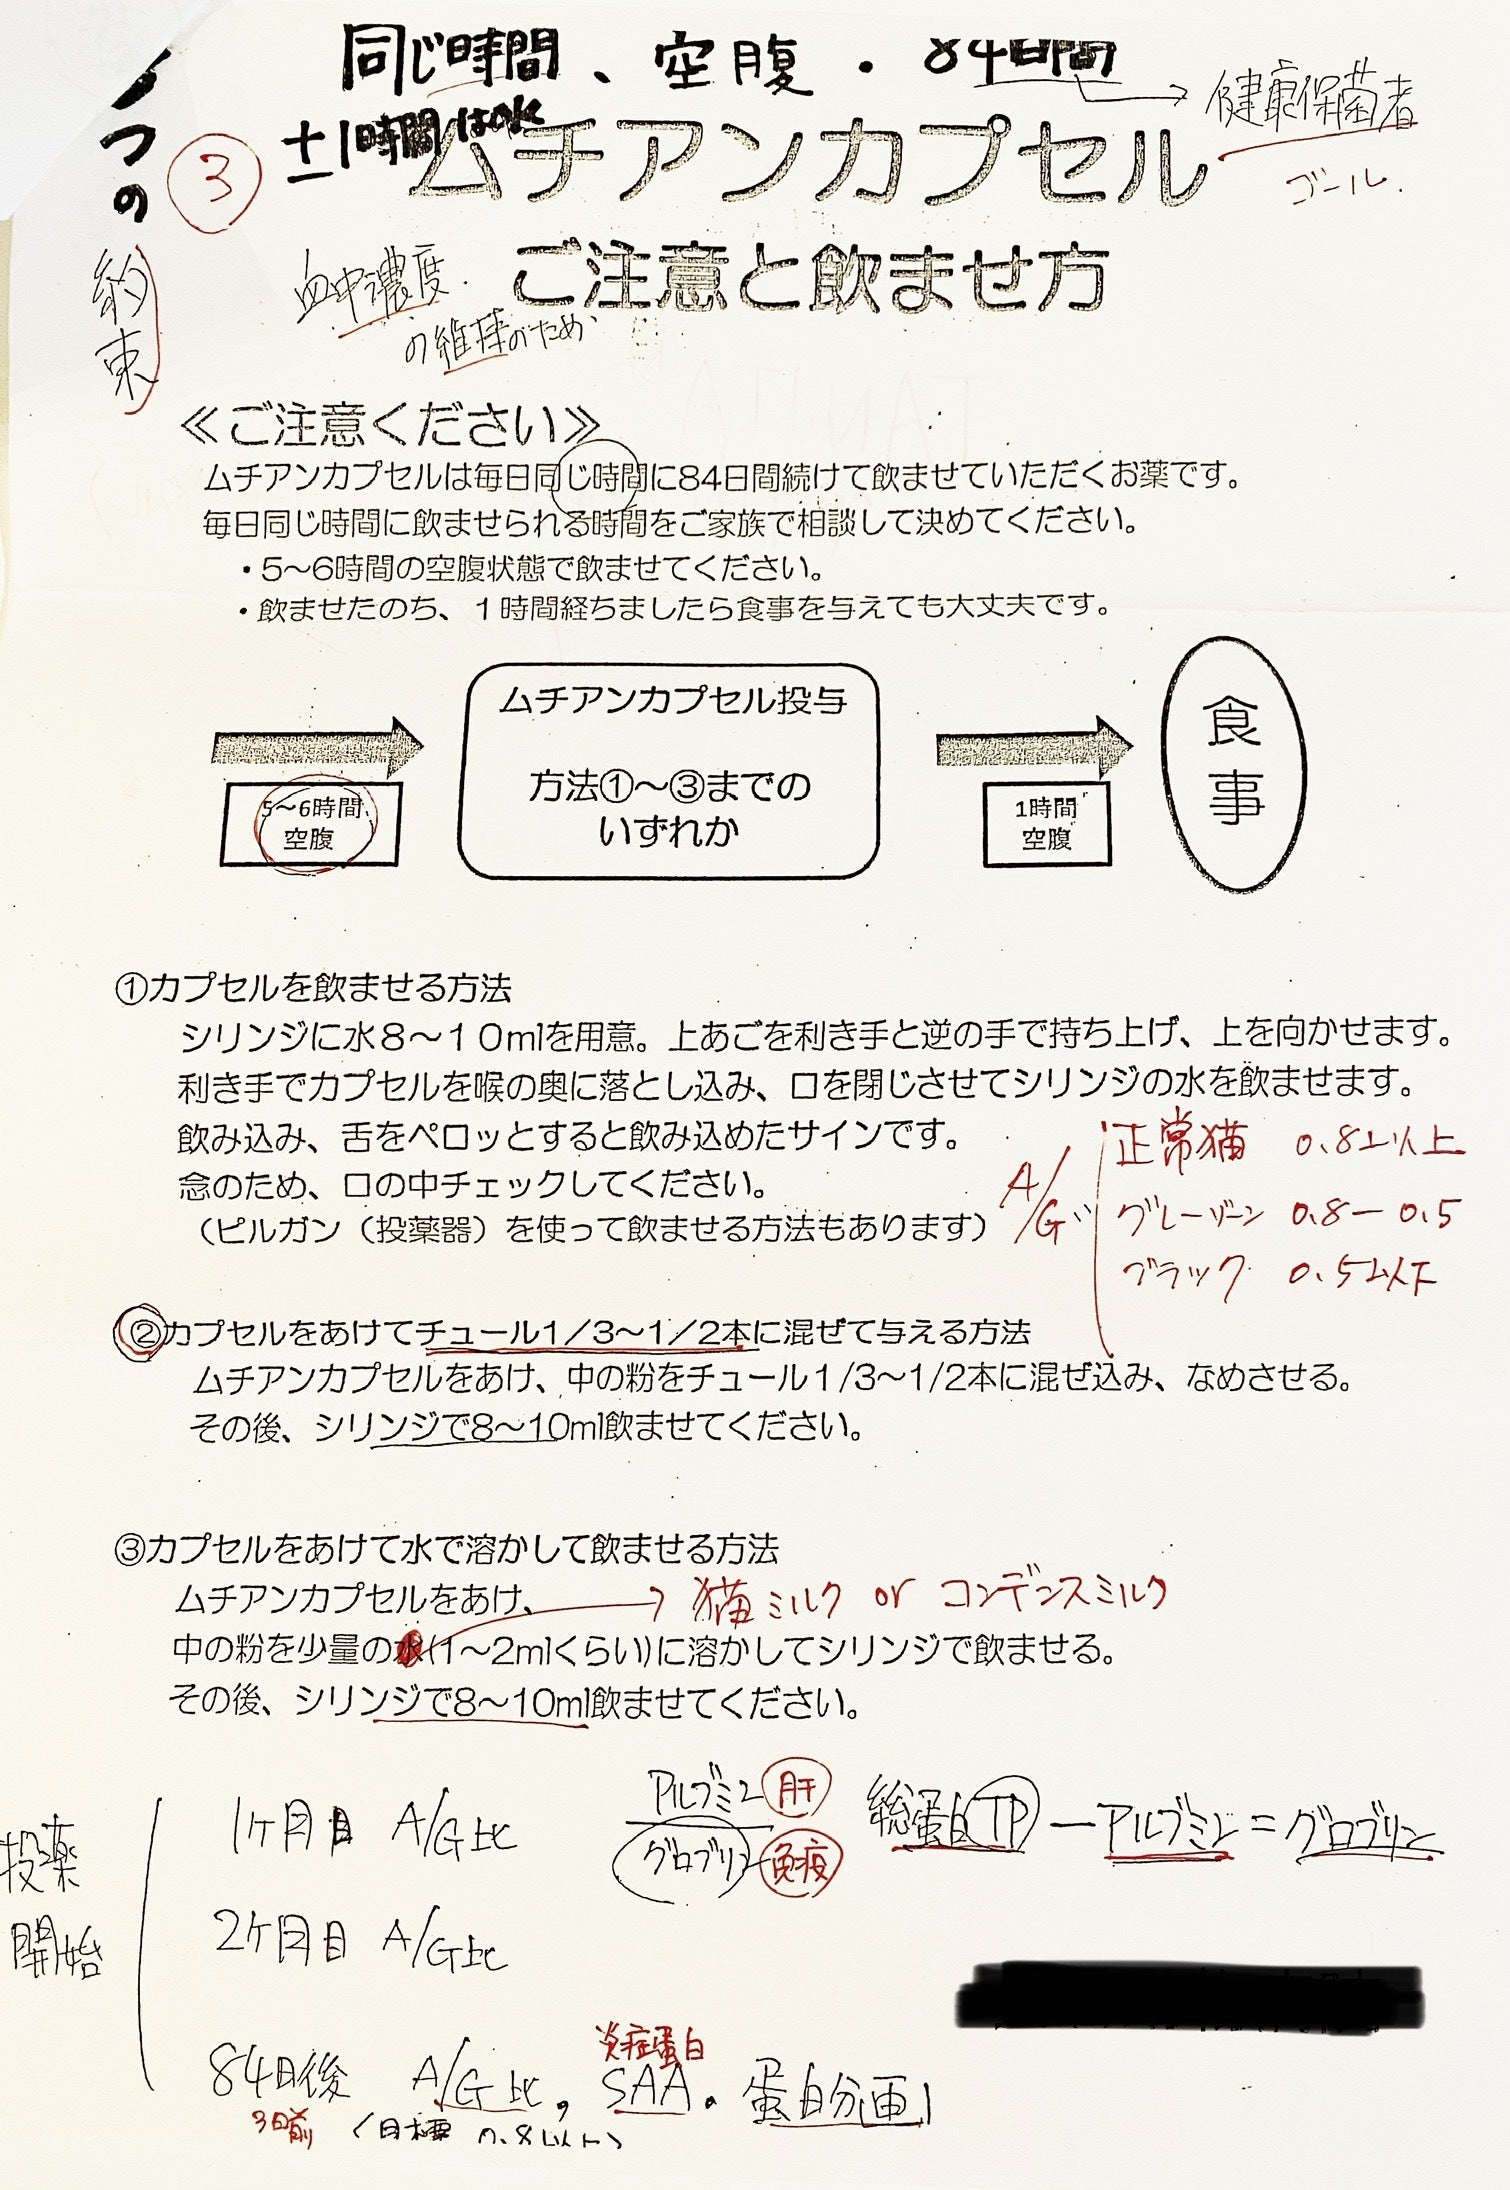 同じ時間、空腹・84日間
→健康保菌者
ゴール.
3つの約束
③
±1時間はok
ムチアンカプセル
ご注意と飲ませ方
血中濃度.
の維持のため
≪ご注意ください≫
ムチアンカプセルは毎日同じ時間に84日間続けて飲ませていただくお薬です。
毎日同じ時間に飲ませられる時間をご家族で相談して決めてください。
・5～6時間の空腹状態で飲ませてください。
・飲ませたのち、１時間経ちましたら食事を与えても大丈夫です。
5～6時間
空腹
ムチアンカプセル投与
方法①～③までの
いずれか
1時間
空腹
食事
①カプセルを飲ませる方法
シリンジに水８～１０mlを用意。上あごを利き手と逆の手で持ち上げ、上を向かせます。
利き手でカプセルを喉の奥に落とし込み、口を閉じさせてシリンジの水を飲ませます。
飲み込み、舌をペロッとすると飲み込めたサインです。
念のため、口の中チェックしてください。
（ピルガン（投薬器）を使って飲ませる方法もあります）
A/G
正常猫 0.8以上
グレーゾーン 0.8－0.5
ブラック 0.5以下
②カプセルをあけてチュール1／3～1／2本に混ぜて与える方法
ムチアンカプセルをあけ、中の粉をチュール１/3～1/2本に混ぜ込み、なめさせる。
その後、シリンジで8～10ml飲ませてください。
③カプセルをあけて水で溶かして飲ませる方法
ムチアンカプセルをあけ、
→猫ミルク or コンデンスミルク
中の粉を少量の水(1～2mlくらい)に溶かしてシリンジで飲ませる。
その後、シリンジで8～10ml飲ませてください。
投薬開始
1ヶ月目 A/G比
アルブミン 肝
グロブリン 免疫
総蛋白TP－アルブミン＝グロブリン
2ヶ月目 A/G比
炎症蛋白
84日後 A/G比, SAA。蛋白分画
3日前
(目標 0.8以上)